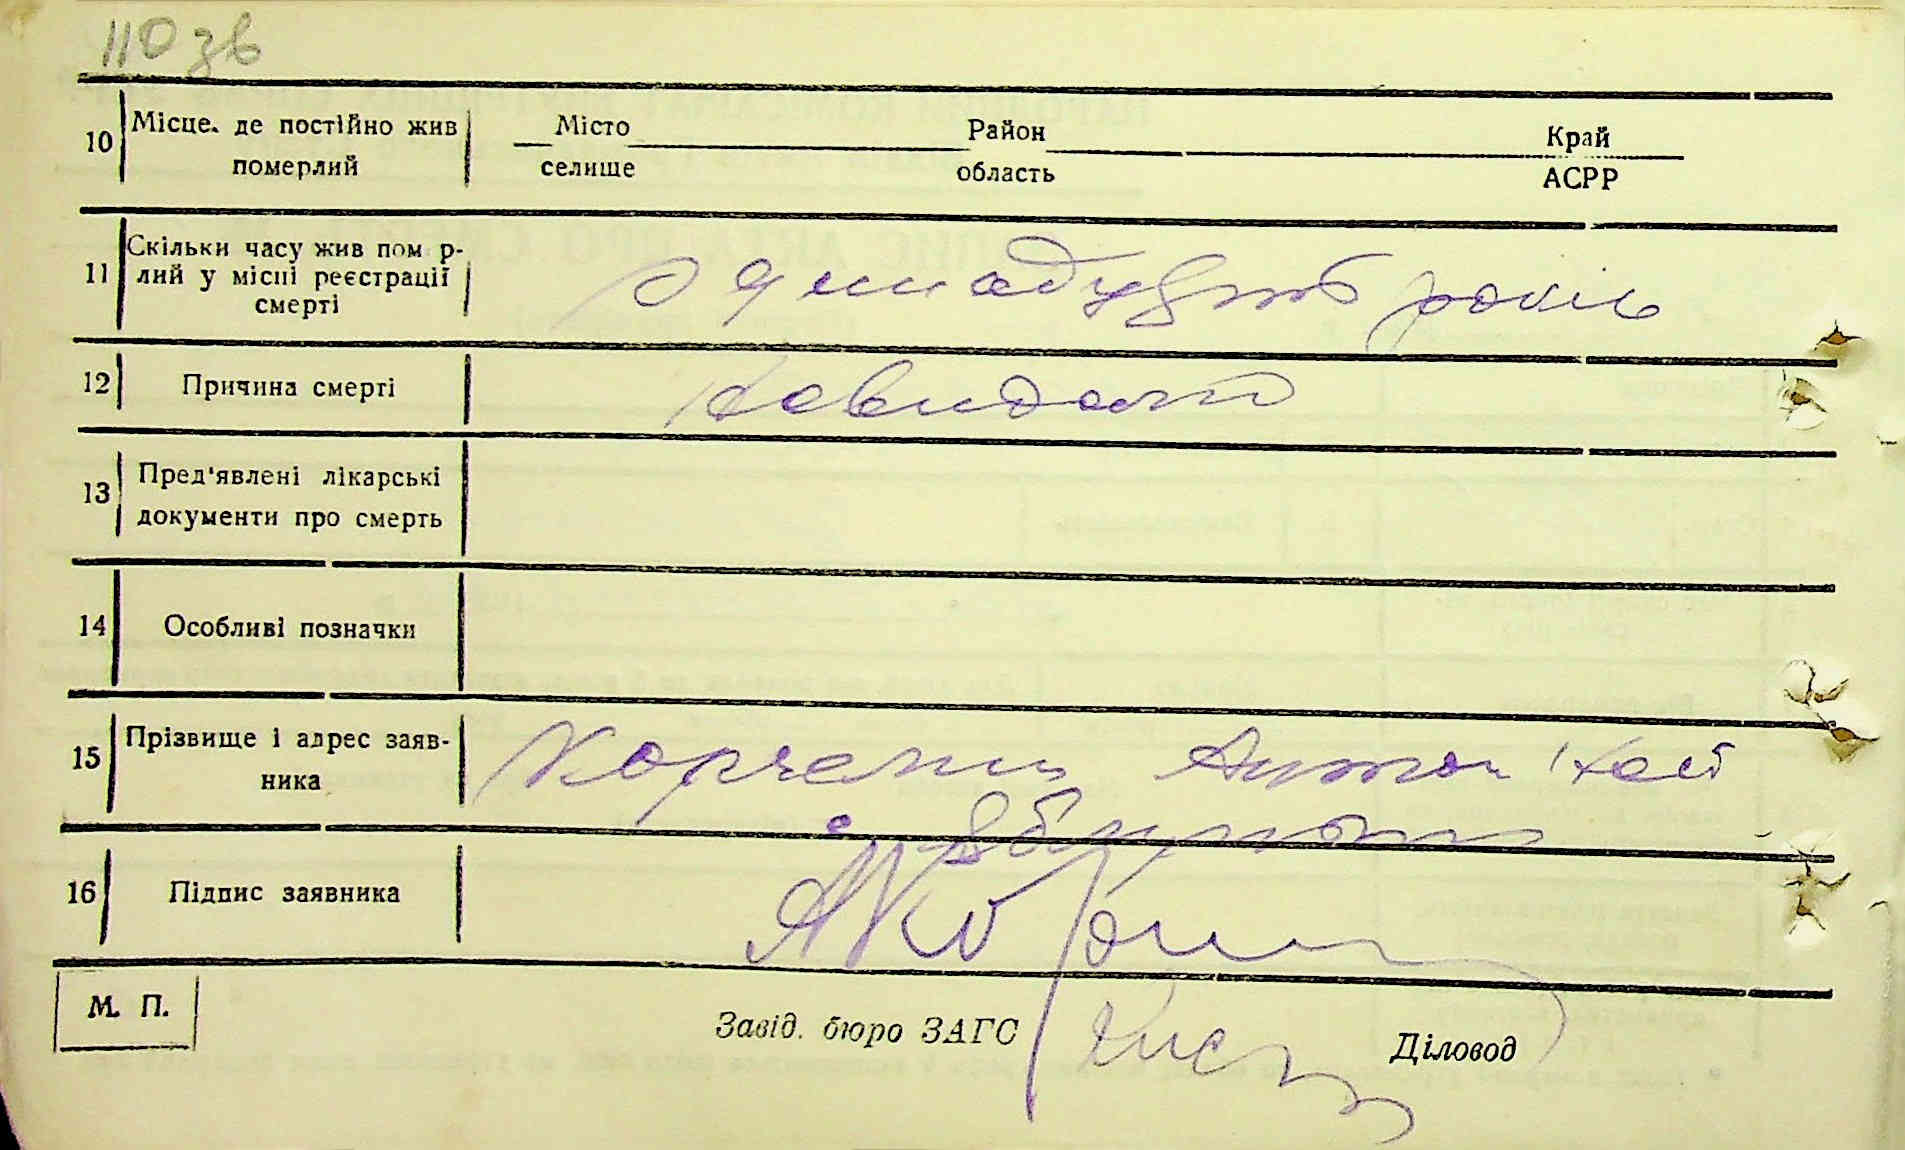 110 зв
10 Місце. де постійно жив померлий
Місто Район Край
селище область АСРР
11 Скільки часу жив пом р-
лий у місці реєстрації
смерті
одинадцять років
12 Причина смерті
13 Пред'явлені лікарські
документи про смерть
14 Особливі позначки
15 Прізвище і адрес заяв-
ника
Антон
16 Підпис заявника
М. П.
Завід. бюро ЗАГС Діловод